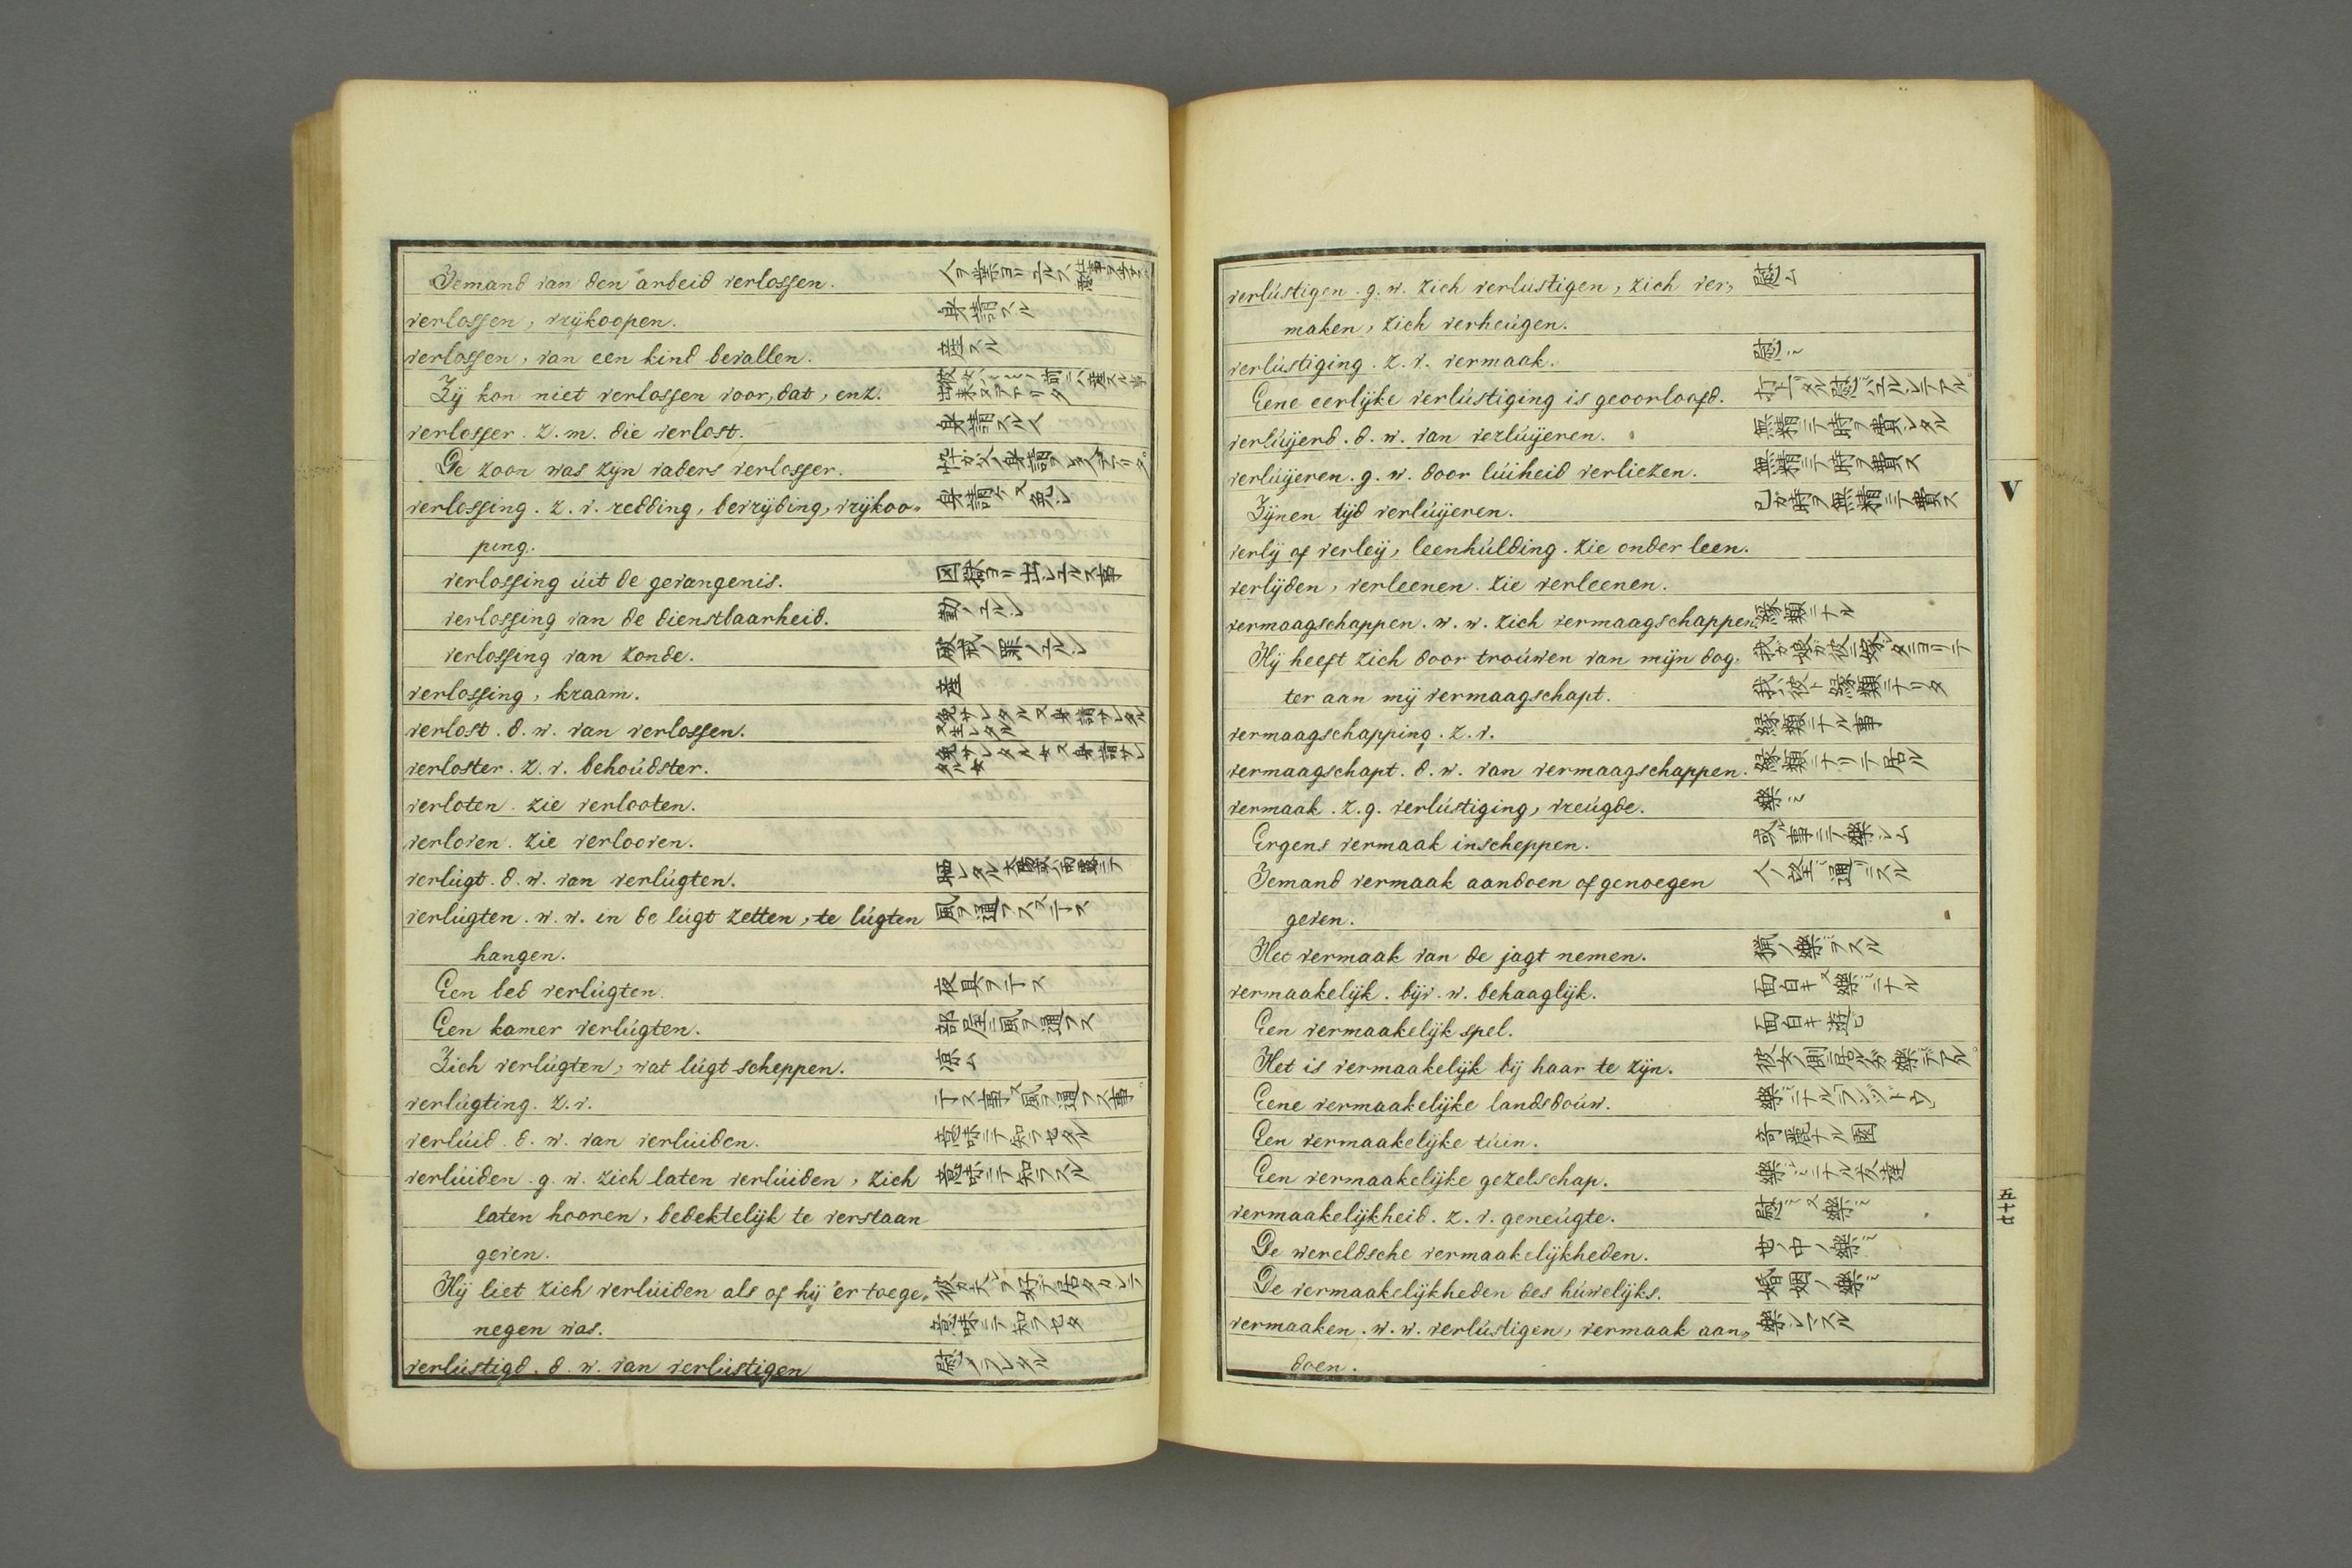 Iemand van den arbeid verlossen. 人ヲ業ヨリユルス
verlossen, vrijkoopen. 身請スル
verlossen, van een kind bevallen. 産スル
Zij kon niet verlossen voor, dat, enz.
verlosser. z. m. die verlost. 身請スル人
De zoon was zijn vaders verlosser.
verlossing. z. v. redding, bevrijding, vrijkoo-
ping.
verlossing úit de gevangenis. 囚獄ヨリ出シユルス事
verlossing van de dienstbaarheid. 勤ノユルシ
verlossing van zonde. 破戒ノ罪ノユルシ
verlossing, kraam. 産
verlost. d. w. van verlossen.
verloster. z. v. behoúdster.
verloten. zie verlooten.
verloven. zie verlooven.
verlúgt. d. w. van verlúgten.
verlúgten. w. w. in de lúgt zetten, te lúgten
hangen.
Een bed verlúgten. 夜具ヲ干ス
Een kamer verlúgten. 部屋ニ風ヲ通フス
Zich verlúgten, wat lúgt scheppen. 涼ム
verlúgting. z. v. 干ス事又風ヲ通フス事
verlúid. d. w. van verlúiden. 意味ニテ知ラセタル
verlúiden. g. w. zich laten verlúiden, zich 意味ニテ知ラスル
laten hooren, bedektelijk te verstaan
geven.
Hij liet zich verlúiden als of hij 'er toege-
negen was. 意味ニテ知ラセタ
verlústigd. d. w. van verlústigen
verlústigen. g. w. zich verlústigen, zich ver- 慰ム
maken, zich verheúgen.
verlústiging. z. v. vermaak. 慰ミ
Eene eerlijke verlústiging is geoorloofd.
verlúijerd. d. w. van verlúijeren. 無精ニテ時ヲ費シタル
verlúijeren. g. w. door lúiheid verliezen. 無精ニテ時ヲ費ス
Zijnen tijd verlúijeren. 己カ時ヲ無精ニテ費ス
verlij of verleij, leenhúlding. zie onder leen.
verlijden, verleenen. zie verleenen.
vermaagschappen. w. w. zich vermaagschappen. 縁類ニナル
Hij heeft zich door troúwen van mijn dog-
ter aan mij vermaagschapt. 我彼ト縁類ニナリタ
vermaagschapping. z. v. 縁類ニナル事
vermaagschapt. d. w. van vermaagschappen. 縁類ニナリテ居ル
vermaak. z. g. verlústiging, vreúgde. 樂ミ
Ergens vermaak inscheppen. 或事ニテ樂シム
Iemand vermaak aandoen of genoegen 人ノ望通ニスル
geven.
Het vermaak van de jagt nemen. 猟ノ樂ヲスル
vermaakelijk. bijv. w. behaaglijk. 面白キ又樂ミナル
Een vermaakelijk spel. 面白キ遊ビ
Het is vermaakelijk bij haar te zijn. 彼女ノ側ニ居ルガ樂デアル
Eene vermaakelijke landsdoúw.
Een vermaakelijke túin. 奇麗ナル園
Een vermaakelijke gezelschap. 樂ミニナル友達
vermaakelijkheid. z. v. geneúgte. 慰ミ又樂ミ
De wereldsche vermaakelijkheden. 世ノ中ノ樂ミ
De vermaakelijkheden des húwelijks. 婚姻ノ樂ミ
vermaaken. w. w. verlústigen, vermaak aan- 樂シマスル
doen.
V
五十七